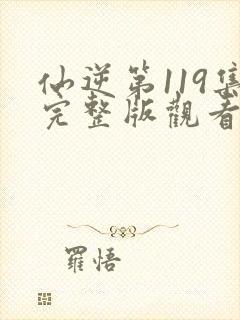 仙逆第119集
完整版觀看
羅悟